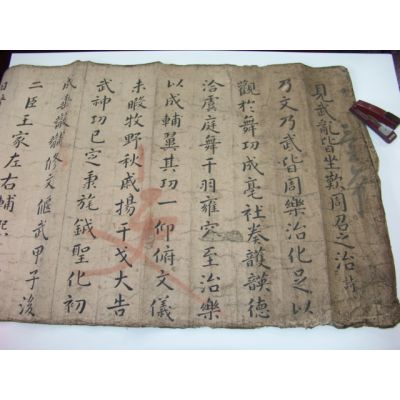 見武亂皆坐歎周召之治詩
乃文乃武皆周樂治化足以
觀於舞功成亳社奏頀韺德
洽虞庭舞干羽雍容至治樂
以成輔翼其功一仰俯文儀
未暇牧野秋戚揚干戈大告
武神功已定秉旄鉞聖化初
成奏黻黼修文偃武甲子後
二臣王家左右輔